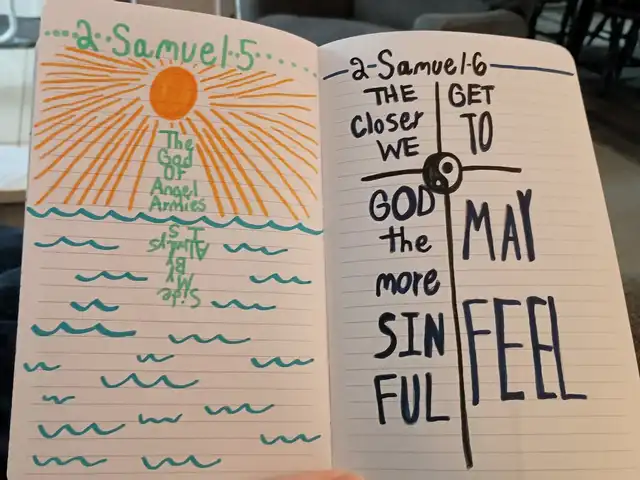 2 Samuel 5
The
God
Of
Angel
Armies
Is
Always
By
My
Side
2 Samuel 6
THE
Closer
WE
GET
TO
GOD
the
more
SIN
FUL
MAY
FEEL